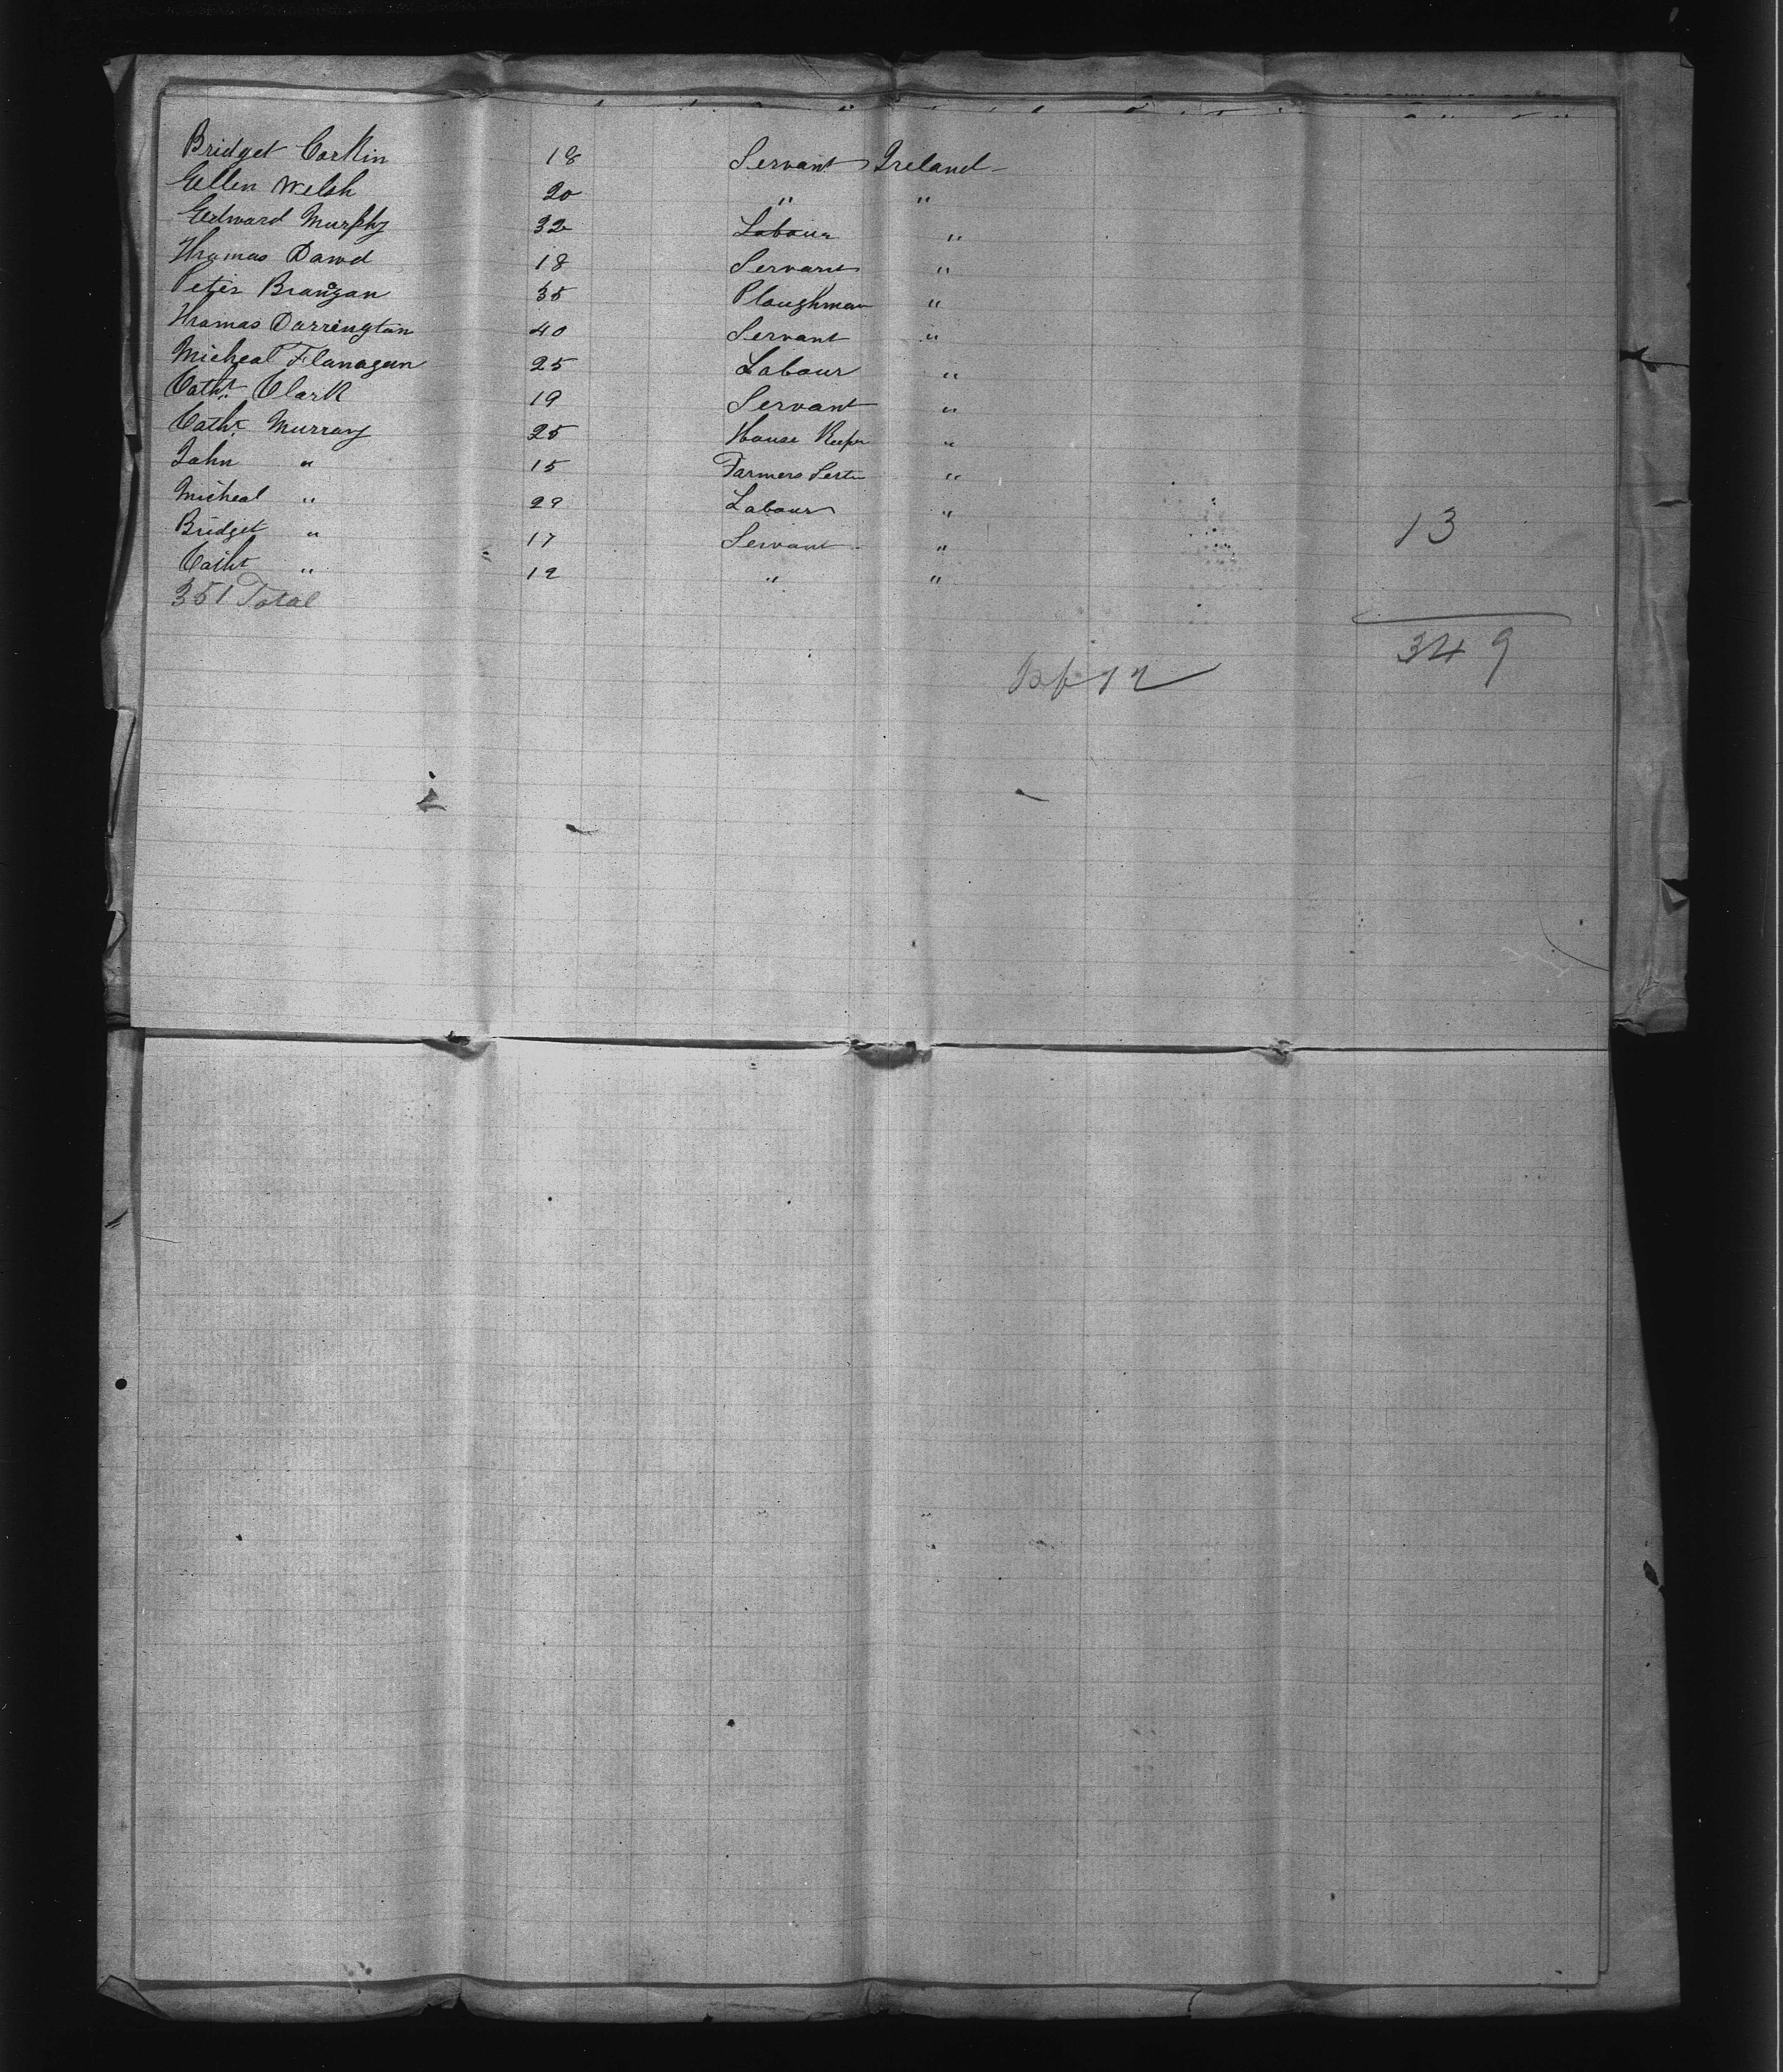 Bridget Corkin 18 Servant Ireland
Ellen Welsh 20 " "
Edward Murphy 32 Labour "
Thomas Dawd 18 Servant "
Peter Brangan 35 Ploughman "
Thomas Darrington 40 Servant "
Micheal Flanagan 25 Labour "
Catht Clark 19 Servant "
Catht Murray 25 House Keeper "
John " 15 Farmers "
Micheal " 29 Labour "
Bridget " 17 Servant " 13
Catht " 19 " "
351 Total
349